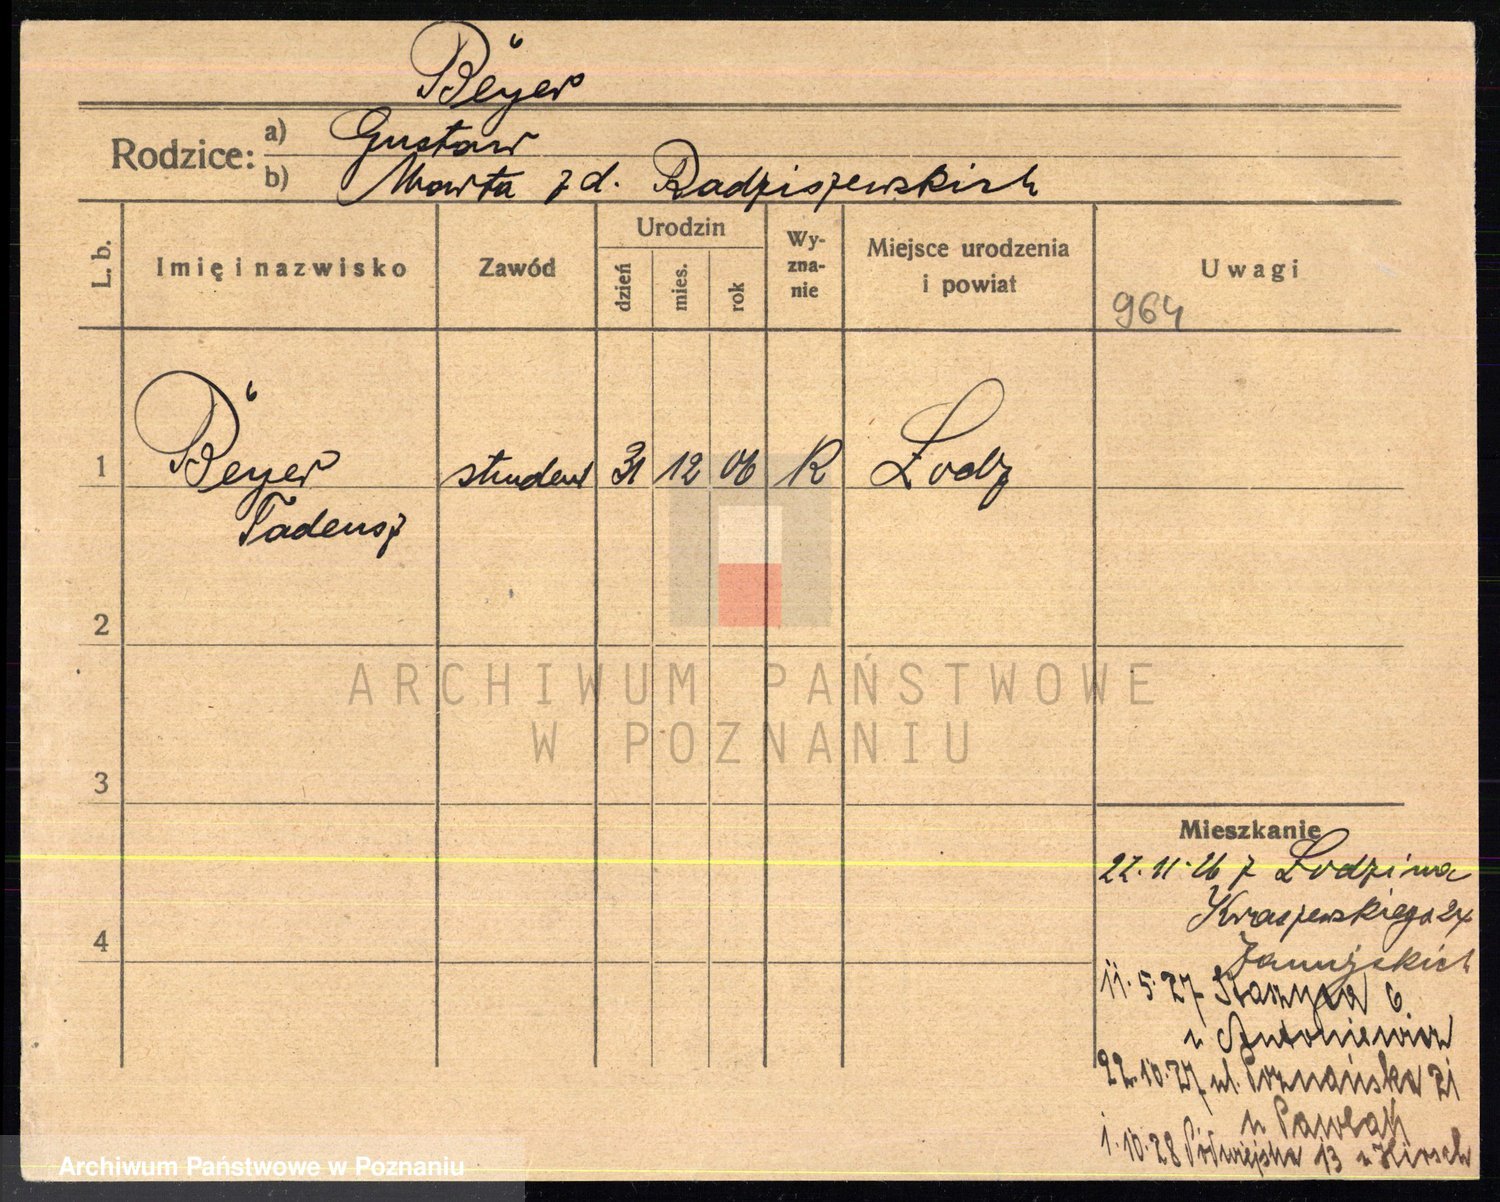 Beyer
Rodzice: a) Gustaw
b) Marta z d. Radziszewskich
L. b.
Imię i nazwisko
Zawód
Urodzin
dzień
mies.
rok
Wy-
zna-
nie
Miejsce urodzenia
i powiat
Uwagi
964
1 Beyer student 31 12 06 R Łodz
Tadeusz
2
3
4
ARCHIWUM PAŃSTWOWE
W POZNANIU
Mieszkanie
22.11.26 z Łodzi na
Kraszewskiego
11.5.27 Staszyca 6
u Antoniewicz
22.10.27 ul. Poznańska 21
u Pawlak
1.10.28 Półwiejska 13 u Hirsch
Archiwum Państwowe w Poznaniu